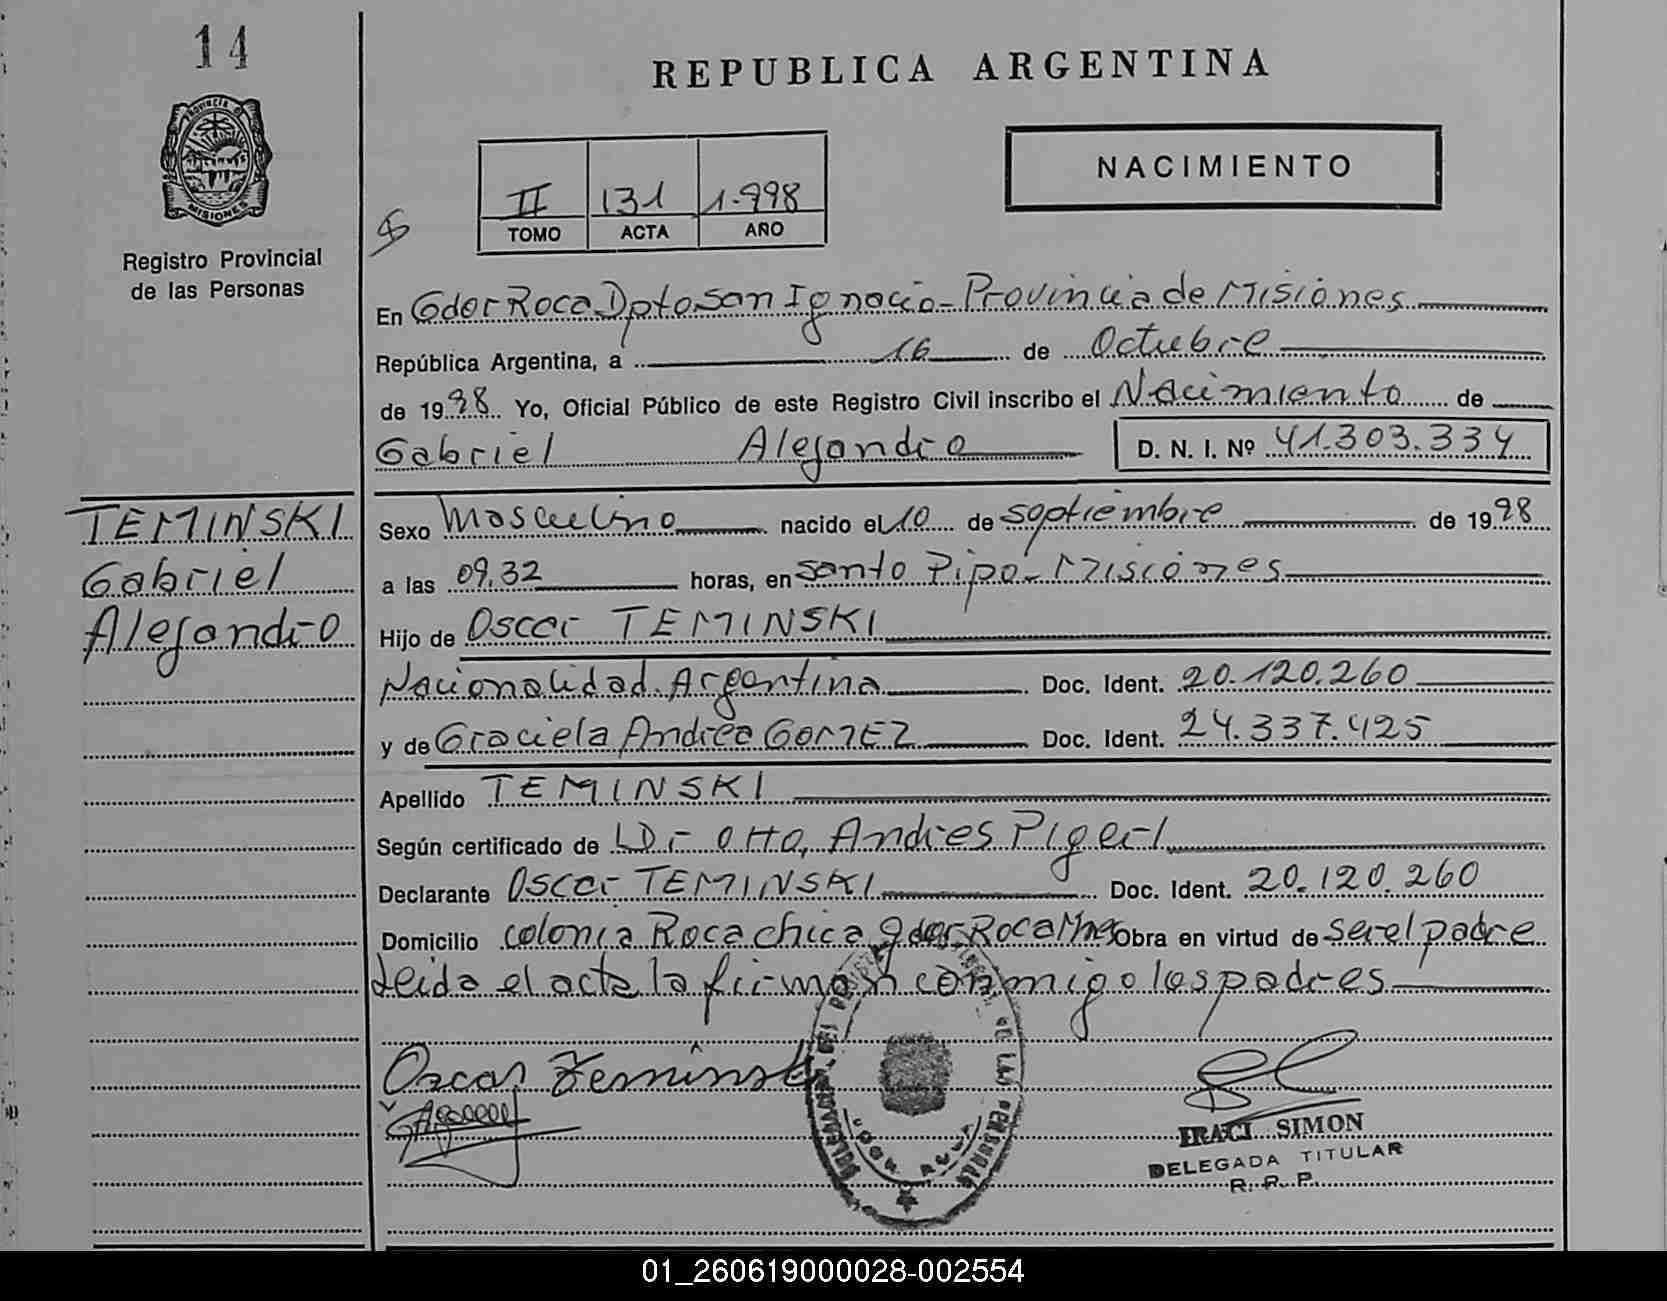 14
REPUBLICA ARGENTINA
PROVINCIA DE
MISIONES
Registro Provincial
de las Personas
II 131 1.998
TOMO ACTA AÑO
NACIMIENTO
En Gdor Roca Dpto San Ignacio - Provincia de Misiones
República Argentina, a 16 de Octubre
de 1998 Yo, Oficial Público de este Registro Civil inscribo el Nacimiento de
Gabriel Alejandro D. N. I. Nº 41.303.334
TEMINSKI
Gabriel
Alejandro
Sexo Masculino nacido el 10 de septiembre de 1998
a las 09.32 horas, en Santo Pipo - Misiones
Hijo de Oscar TEMINSKI
Nacionalidad Argentina Doc. Ident. 20.120.260
y de Graciela Andrea GOMEZ Doc. Ident. 24.337.425
Apellido TEMINSKI
Según certificado de Dr Otto, Andres Pigerl
Declarante Oscar TEMINSKI Doc. Ident. 20.120.260
Domicilio colonia Roca chica gdor Roca Mnes Obra en virtud de ser el padre
Leida el acta la firman conmigo los padres
Oscar Teminski
IRACI SIMON
DELEGADA TITULAR
R. R. P.
01_260619000028-002554